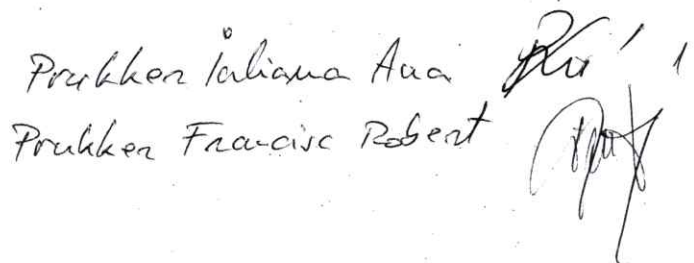 Prukker Iuliana Ana
Prukker Francisc Robert